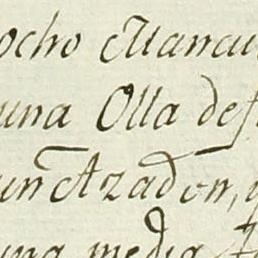 ocho Mancu
una Olla des
un Azadon, y
una media